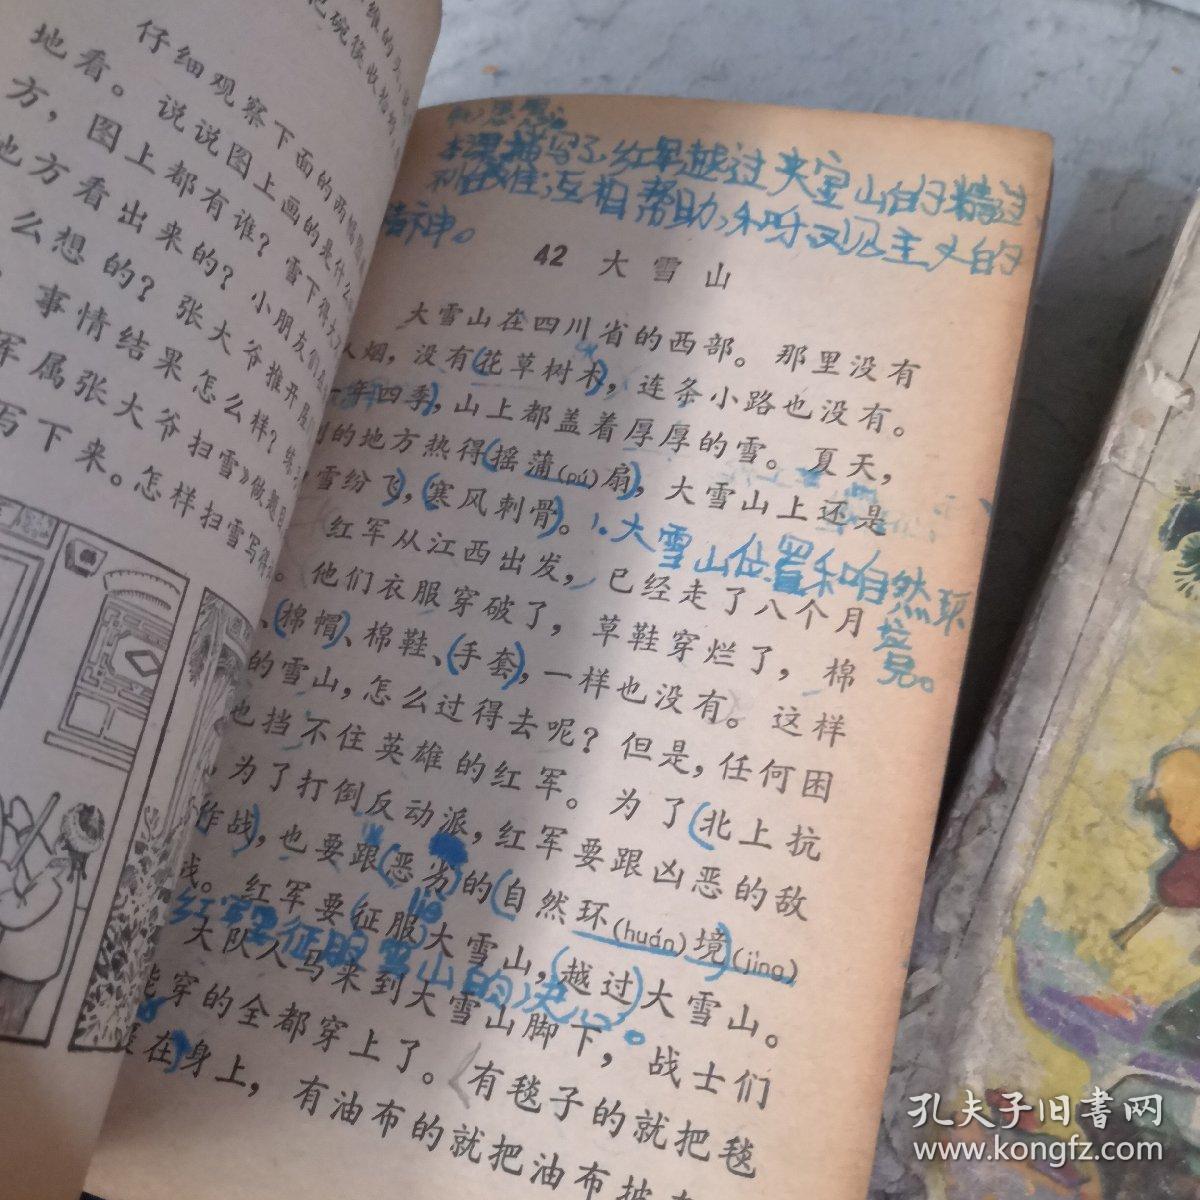 维的头
把碗筷收拾
仔细观察下面的两幅图
地看。说说图上画的是什么
方,图上都有谁?雪下得大
地方看出来的?小朋友们
么想的?张大爷推开屋门
事情结果怎么样?练
军属张大爷扫雪》做题目
写下来。怎样扫雪写得
中心思想:
本课描写了红军越过夹金山的精过
神。
42 大雪山
大雪山在四川省的西部。那里没有
人烟,没有花草树木,连条小路也没有。
一年四季,山上都盖着厚厚的雪。夏天,
别的地方热得摇蒲(pú)扇,大雪山上还是
雪纷飞,寒风刺骨。
1.大雪山位置和自然环
红军从江西出发,已经走了八个月
他们衣服穿破了,草鞋穿烂了,棉
、棉帽、棉鞋、手套,一样也没有。这样
的雪山,怎么过得去呢?但是,任何困
也挡不住英雄的红军。为了北上抗
,为了打倒反动派,红军要跟凶恶的敌
作战,也要跟恶劣的自然环(huán)境(jìng)
战。红军要征服大雪山,越过大雪山。
红军要征服雪山的决心。
大队人马来到大雪山脚下,战士们
能穿的全都穿上了。有毯子的就把毯
在身上,有油布的就把油布披在
孔夫子旧书网
www.kongfz.com